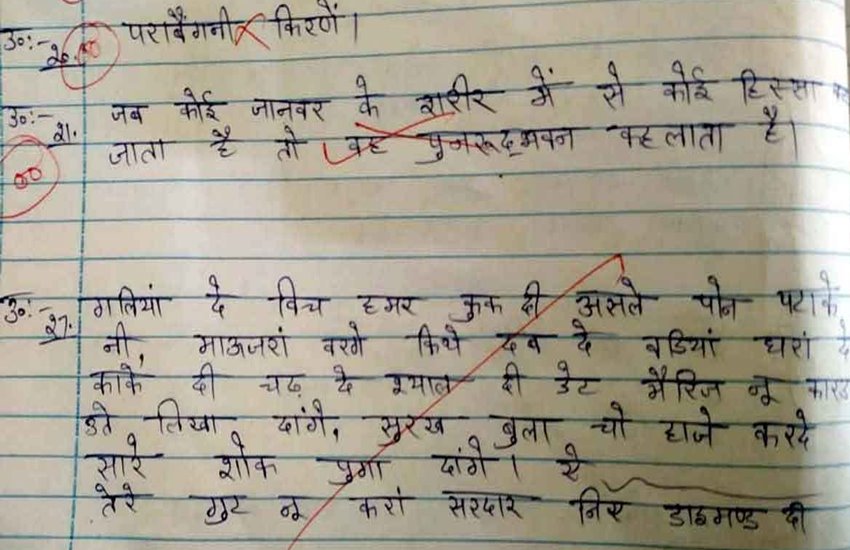 उ०:- २०. 00 पराबैंगनी किरणें।
उ०:- २१. जब कोई जानवर के शरीर में से कोई हिस्सा
00 जाता है तो वह पुनरूद्भवन कहलाता है।
उ०:- २७. गलियां दे विच हमर कुक दी असले पोन पटाके
नी, माऊजरां वरगे किथे दब दे वडियां घरां दे
काके दी चढ़ दे श्याल दी डेट मैरिज नू कारड
उते लिखा दांगे, सुरख बुला चो हाजे करदे
सारे शोक पुगा दांगे। से
तेरे गुट नू करां सरदार निए डाइमण्ड दी